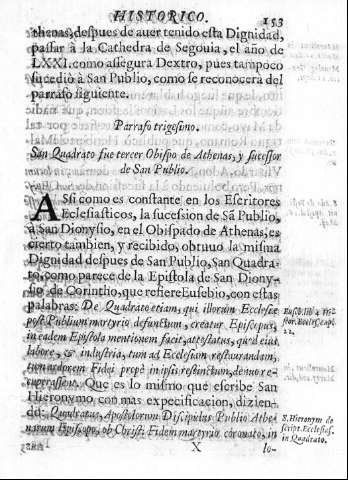 HISTORICO.
153
thenas, despues de auer tenido esta Dignidad,
passar à la Cathedra de Segouia, el año de
LXXI. como assegura Dextro, pues tampoco
sucediò à San Publio, como se reconocera del
parrafo siguiente.
Parrafo trigesimo.
San Quadrato fue tercer Obispo de Athenas, y sucessor
de San Publio.
ASsi como es constante en los Escritores
Ecclesiasticos, la sucesion de Sã Publio,
à San Dionysio, en el Obispado de Athenas, es
cierto tambien, y recibido, obtuuo la misma
Dignidad despues de San Publio, San Quadra-
to, como parece de la Epistola de San Diony-
sio de Corintho, que refiere Eusebio, con estas
palabras: De Quadrato etiam, qui illorum Ecclesiæ
post Publium martyrio defunctum, creatur Episcopus,
in eadem Epistola mentionem facit, attestatus, quod eius
labore, & industria, tum ad Ecclesiam restaurandam,
tum ardorem Fidei propè in ipsis restinctum, denuo re-
cuperassent. Que es lo mismo que escribe San
Hieronymo, con mas expecificacion, dizien-
do: Quadratus, Apostolorum Discipulus Publio Athe-
narum Episcopo, ob Christi Fidem martyrio coronato, in
X
lo-
Euseb. lib. 4. Hi-
stor. Eccles. cap.
22.
S. Hieronym. de
script. Ecclesias.
in Quadrato.